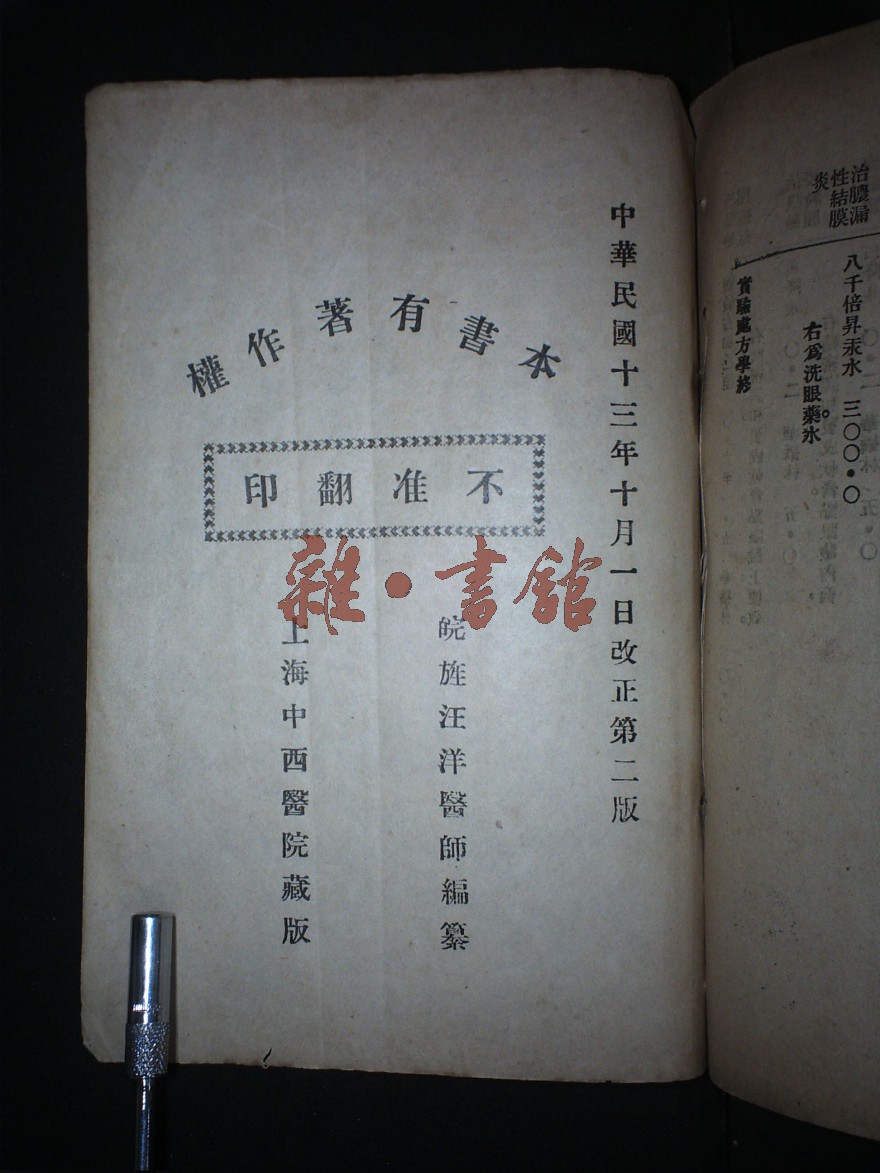 治膿漏
性結膜
炎
八千倍昇汞水 三〇〇·〇
右爲洗眼藥水。
實驗處方學終
中華民國十三年十月一日改正第二版
本書有著作權
不准翻印
皖旌汪洋醫師編纂
上海中西醫院藏版
雜·書館